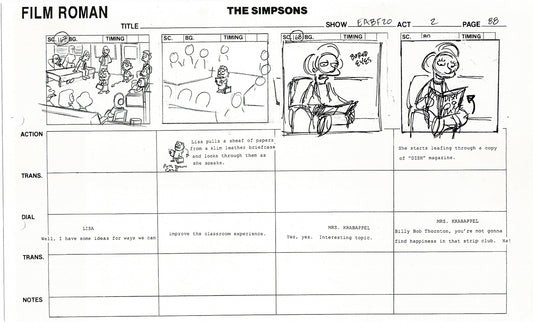 FILM ROMAN
THE SIMPSONS
TITLE
SHOW EABF20 ACT 2 PAGE 88
SC. 167 BG. TIMING
SC. BG. TIMING
SC. 168 BG. TIMING
SC. BG. TIMING
BORED EYES
ACTION
Lisa pulls a sheaf of papers
from a slim leather briefcase
and looks through them as
she speaks.
She starts leafing through a copy
of "DIER" magazine.
TRANS.
DIAL
LISA
Well, I have some ideas for ways we can
improve the classroom experience.
MRS. KRABAPPEL
Yes, yes. Interesting topic.
MRS. KRABAPPEL
Billy Bob Thornton, you're not gonna
find happiness in that strip club. Ha!
TRANS.
NOTES